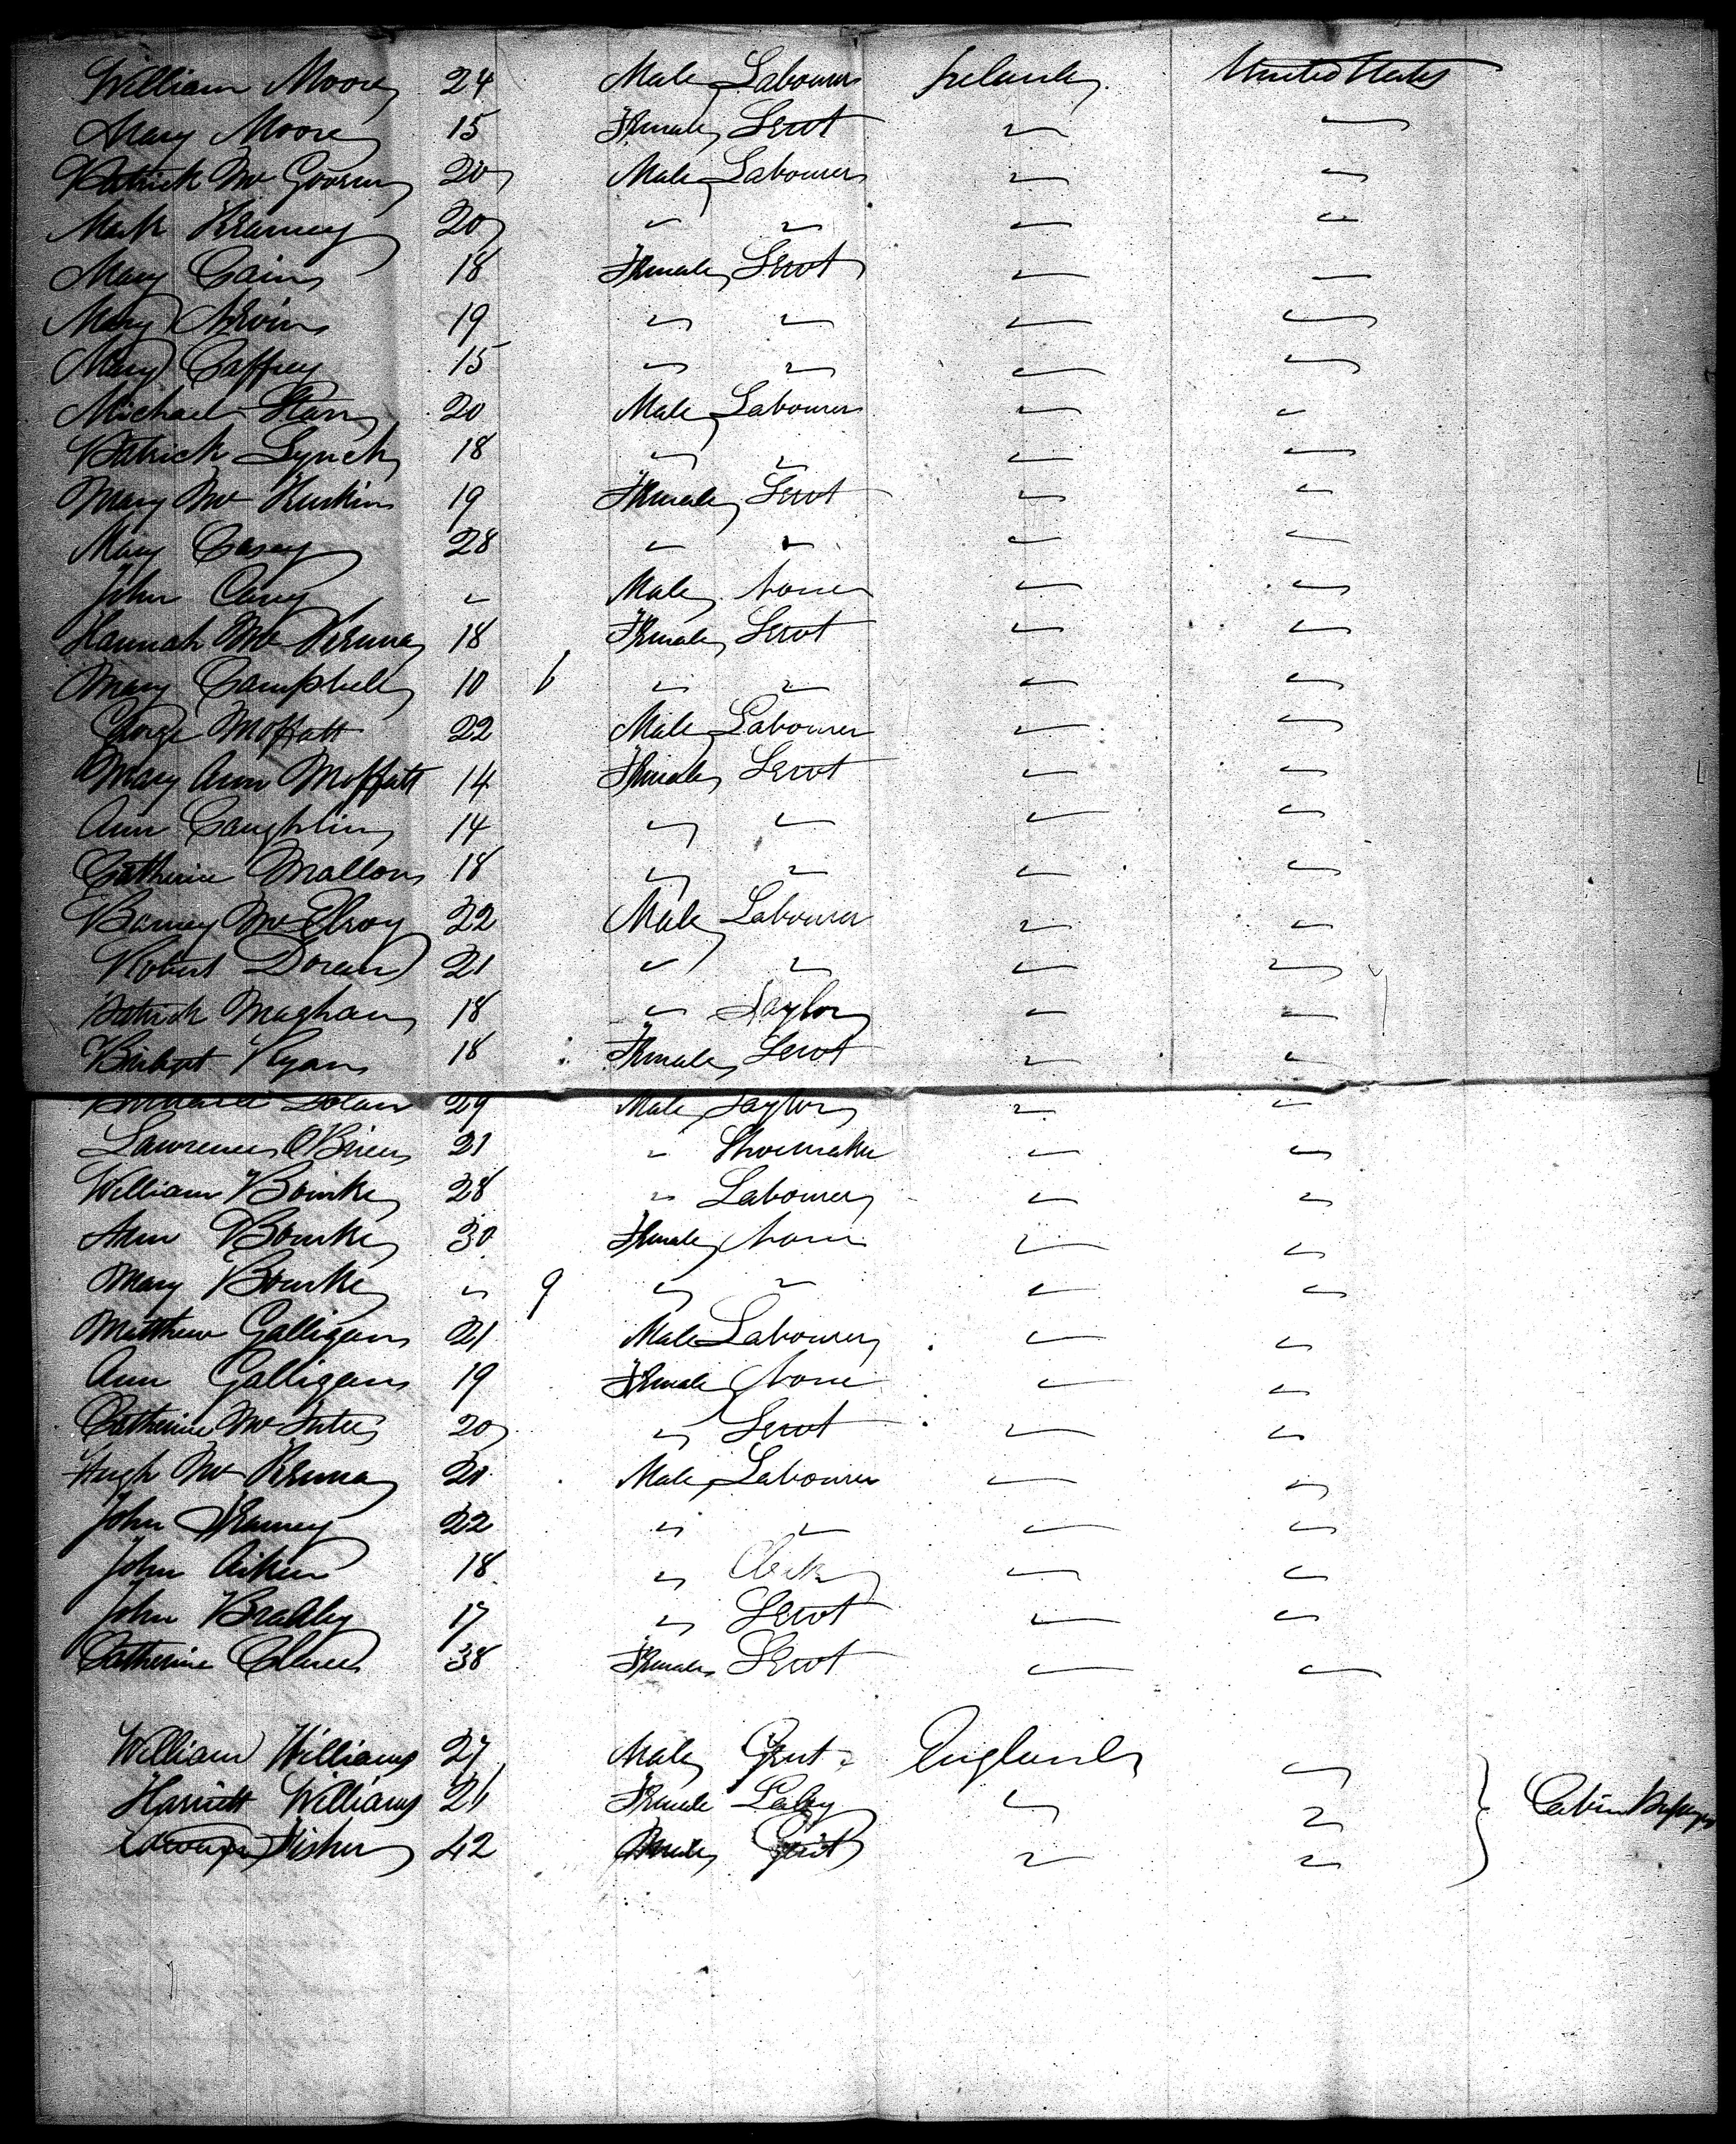 William Moore 24 Male Labourer Ireland United States
Mary Moore 15 Female Servt " "
Patrick Mc Govern 20 Male Labourer " "
Mark Kearney 20 " " " "
Mary Cain 18 Female Servt " "
Mary 19 " " " "
Mary Caffrey 15 " " " "
Michael 20 Male Labourer " "
Patrick Lynch 18 " " " "
Mary Mc 19 Female Servt " "
Mary Casey 28 " " " "
John " Male None " "
Hannah Mc Kenna 18 Female Servt " "
Mary Campbell 10 6 " " " "
George Moffatt 22 Male Labourer " "
Mary Ann Moffatt 14 Female Servt " "
Ann Caughlin 14 " " " "
Catherine Mallon 18 " " " "
Barney Mc Elroy 22 Male Labourer " "
Robert Doran 21 " " " "
Patrick Maghan 18 " Taylor " "
Bridget Ryan 18 Female Servt " "
Dolan 29 Male Taylor " "
Lawrence O'Brien 21 " Shoemaker " "
William Bourke 28 " Labourer " "
Ann Bourke 30 Female None " "
Mary Bourke " 9 " " " "
Matthew Galligan 21 Male Labourer " "
Ann Galligan 19 Female None " "
Catherine Mc 20 " Servt " "
Hugh Mc Kenna 21 Male Labourer " "
John Kearney 22 " " " "
John Aiken 18 " Clerk " "
John Bradley 17 " Servt " "
Catherine 38 Female Servt " "
William Williams 27 Male Gent England "
Harriett Williams 26 Female Lady " " Cabin
Fisher 42 Male Gent " "